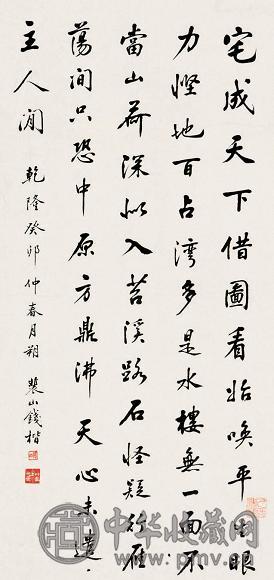 宅成天下借圖看始喚平生眼
力慳地百占灣多是水樓無一面不
當山荷深似入苕溪路石怪疑行雁
蕩間只恐中原方鼎沸天心未遣
主人閒
乾隆癸卯仲春月朔 裴山錢楷
中华收藏网
www.pmv.c